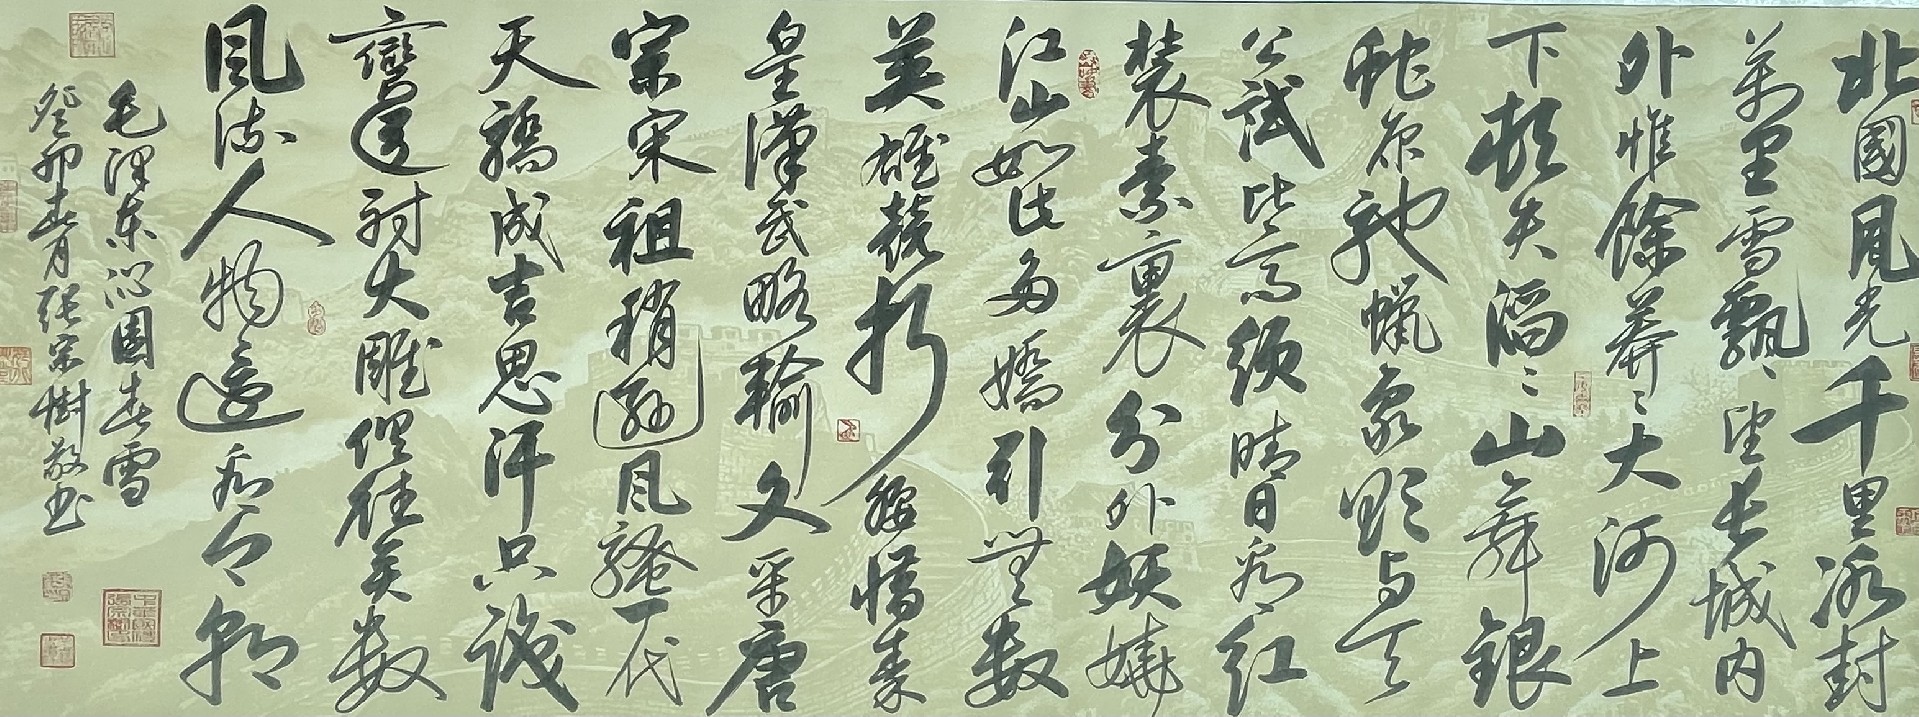 北國風光千里冰封
萬里雪飄望長城內
外惟餘莽〻大河上
下頓失滔〻山舞銀
蛇原馳蠟象欲与天
公試比高須晴日看紅
裝素裹分外妖嬈
江山如此多嬌引無數
英雄競折腰惜秦
皇漢武略輸文采唐
宗宋祖稍遜風騷一代
天驕成吉思汗只識
彎弓射大雕俱往矣數
風流人物還看今朝
毛澤東沁園春雪
癸卯春月張宗樹敬书